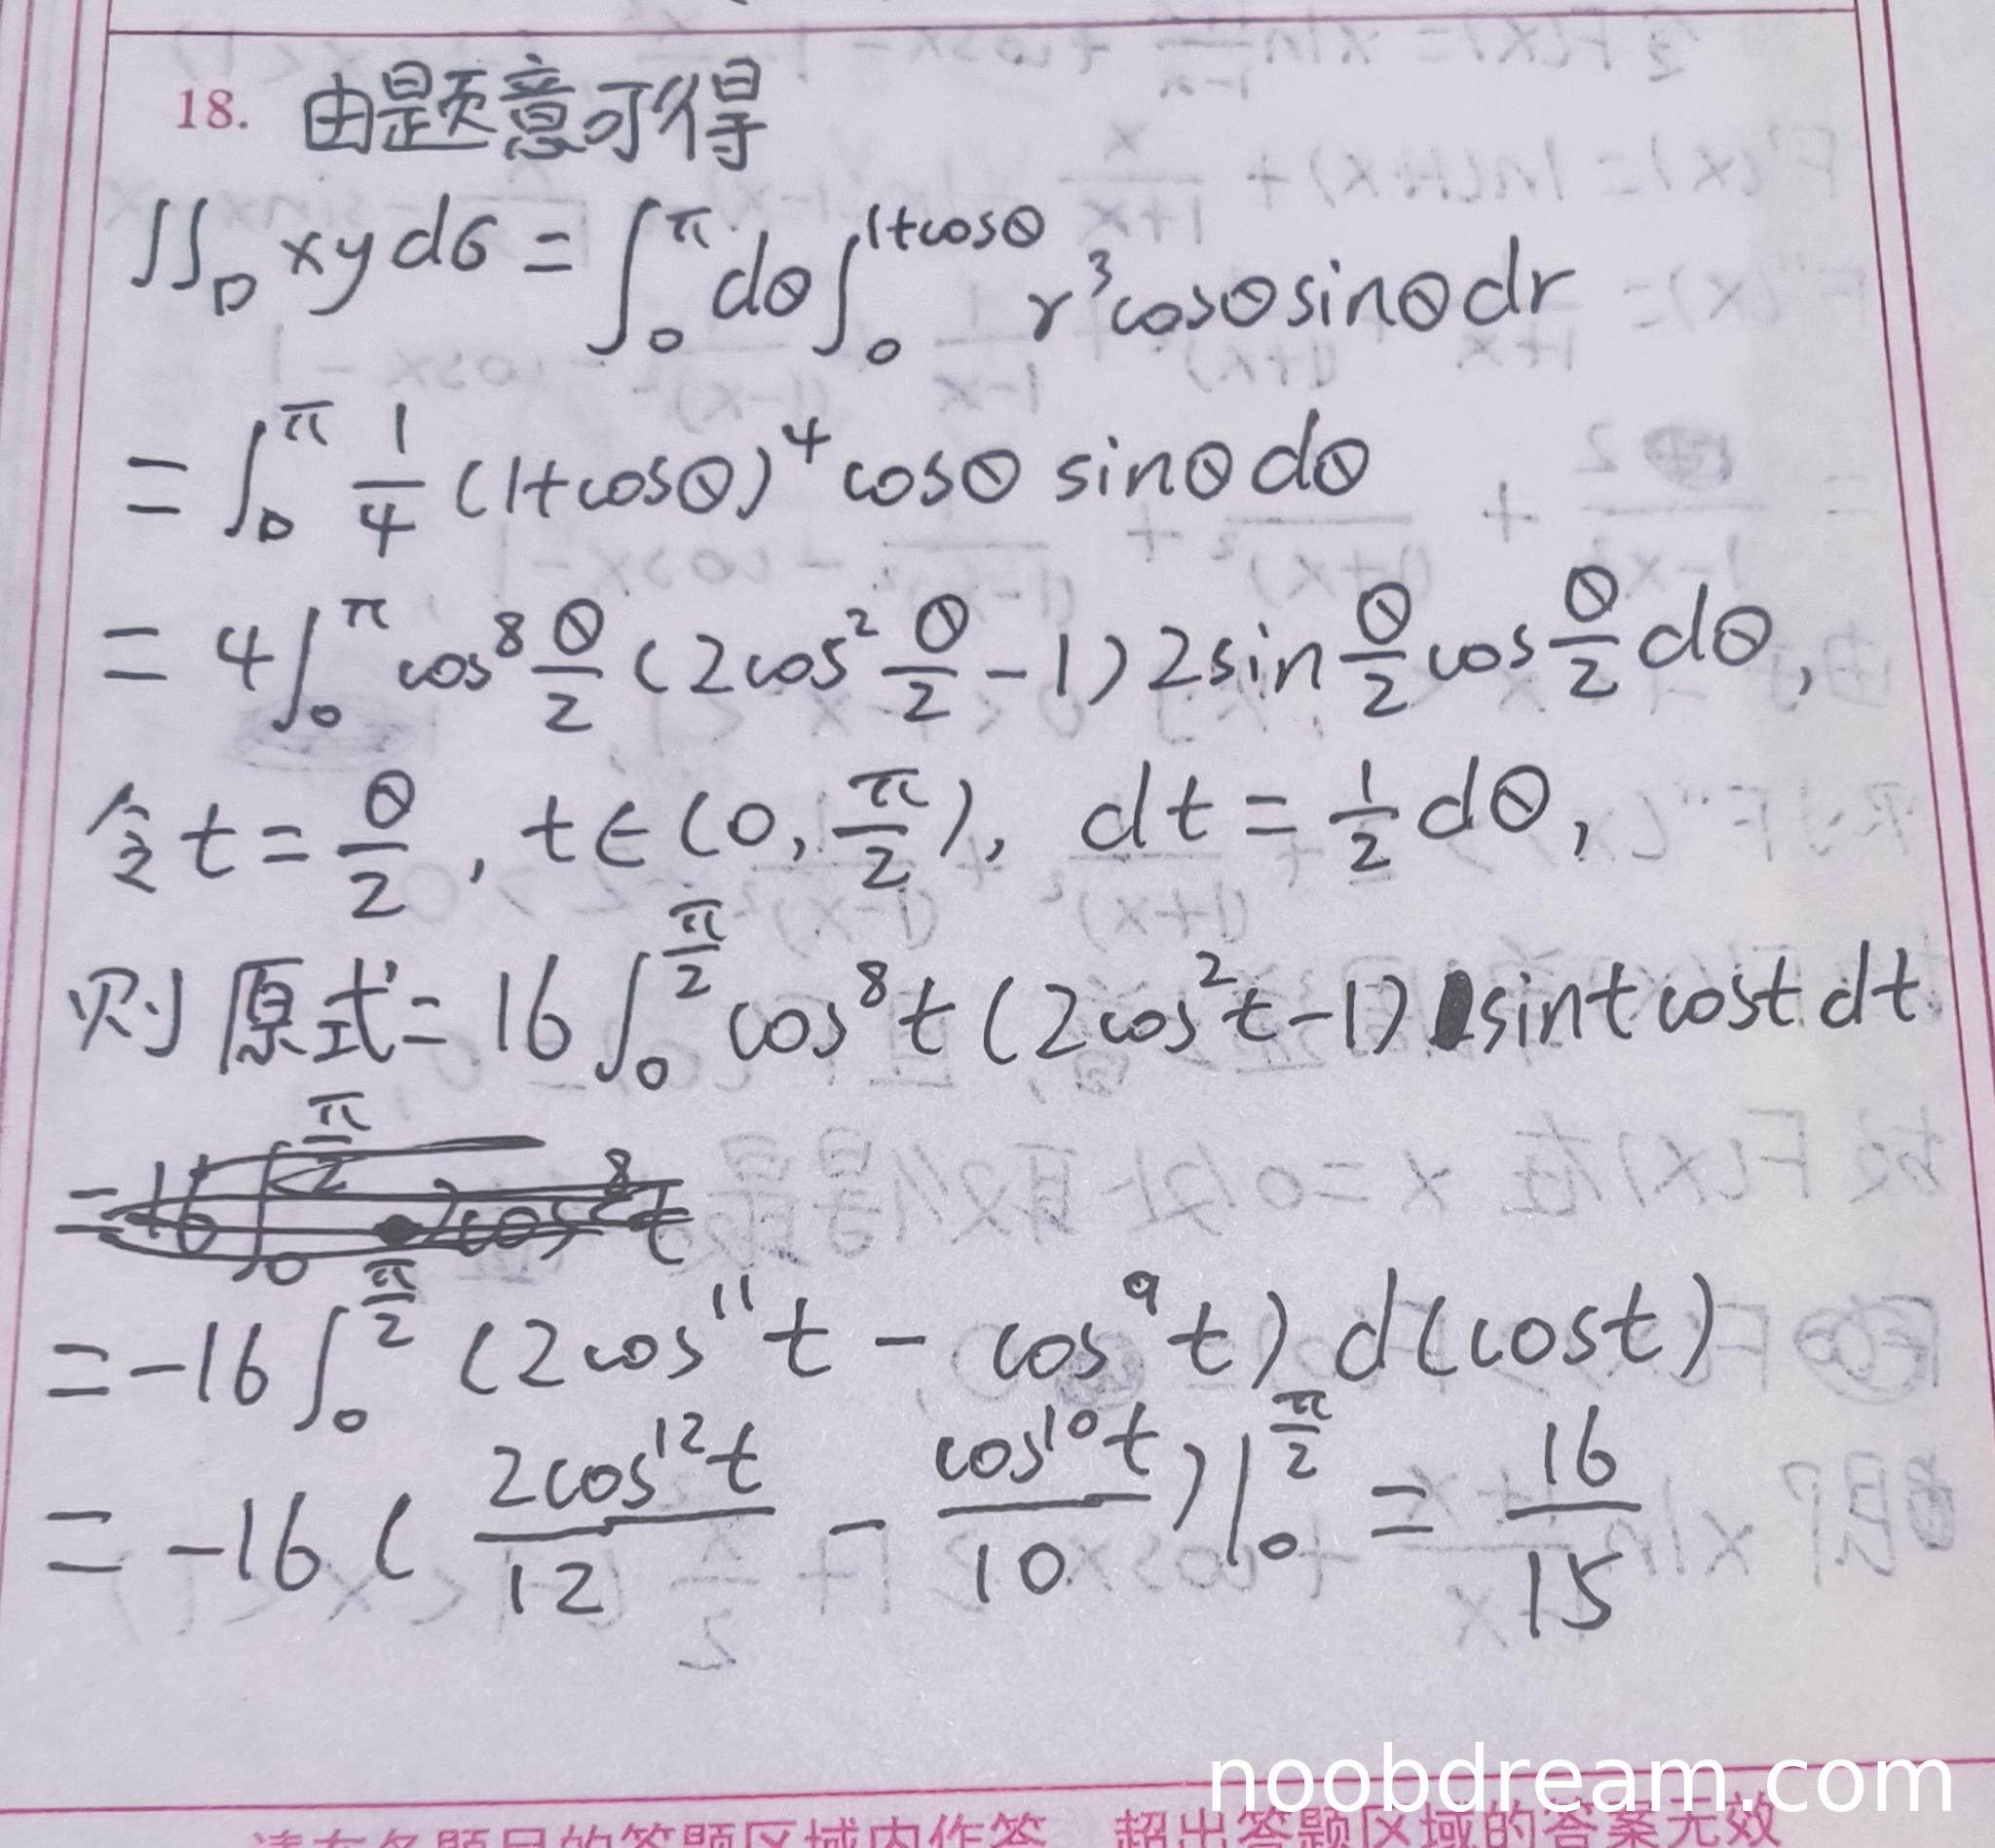 18. 由题意可得
∬_D xydσ = ∫_0^π dθ ∫_0^{1+cosθ} r^3 cosθ sinθ dr
= ∫_0^π \frac{1}{4} (1+cosθ)^4 cosθ sinθ dθ
= 4∫_0^π cos^8 \frac{θ}{2} (2cos^2 \frac{θ}{2} - 1) 2sin \frac{θ}{2} cos \frac{θ}{2} dθ,
令 t = \frac{θ}{2}, t∈(0, \frac{π}{2}), dt = \frac{1}{2} dθ,
则原式 = 16 ∫_0^{\frac{π}{2}} cos^8 t (2cos^2 t - 1) sint cost dt
= -16 ∫_0^{\frac{π}{2}} (2cos^{11} t - cos^9 t) d(cost)
= -16 ( \frac{2cos^{12} t}{12} - \frac{cos^{10} t}{10} ) |_0^{\frac{π}{2}} = \frac{16}{15}
noobdream.com
请在各题目的答题区域内作答，超出答题区域的答案无效